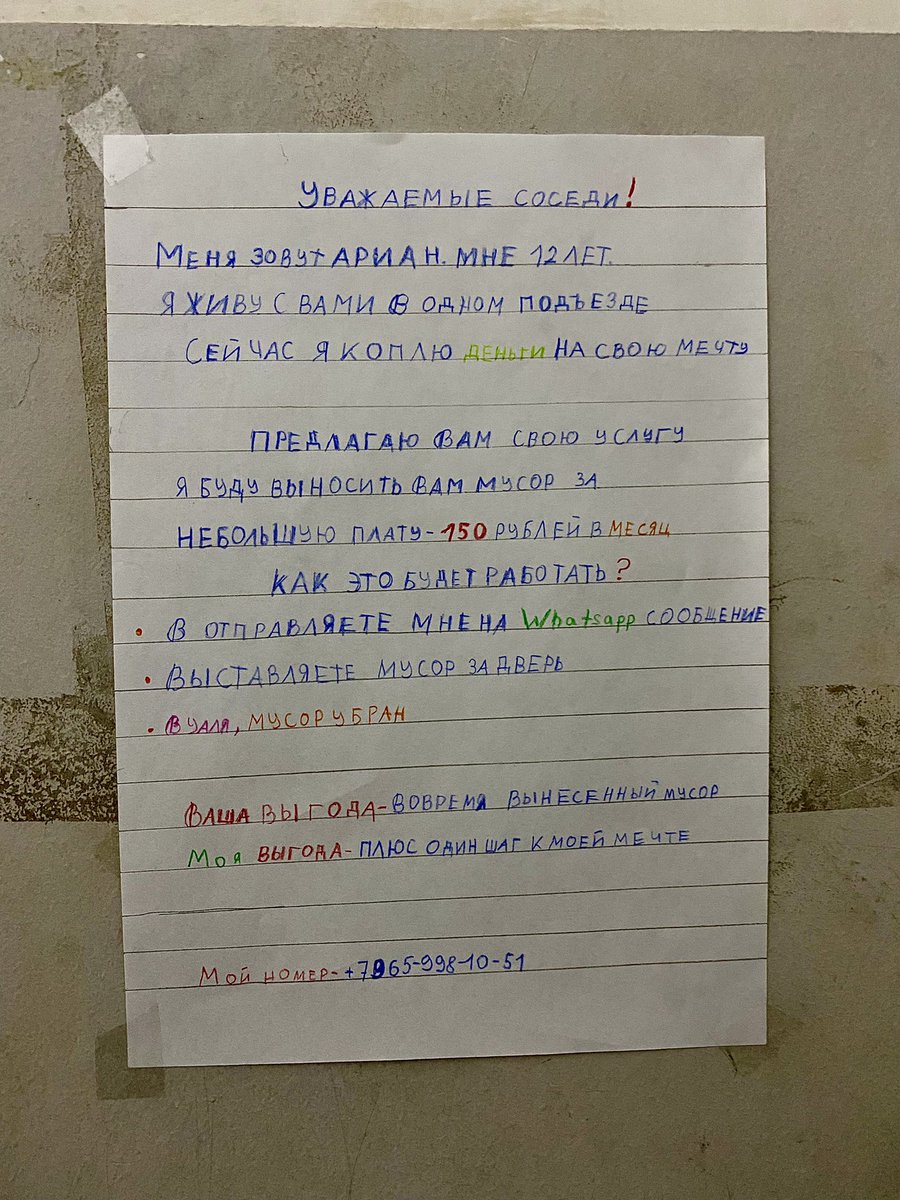 Уважаемые соседи!
Меня зовут Ариан. Мне 12 лет.
Я живу с вами в одном подъезде
Сейчас я коплю деньги на свою мечту
Предлагаю вам свою услугу
Я буду выносить вам мусор за
небольшую плату - 150 рублей в месяц
Как это будет работать?
• В отправляете мне на Whatsapp сообщение
• Выставляете мусор за дверь
• Вуаля, мусор убран
Ваша выгода - вовремя вынесенный мусор
Моя выгода - плюс один шаг к моей мечте
Мой номер - +7965-998-10-51